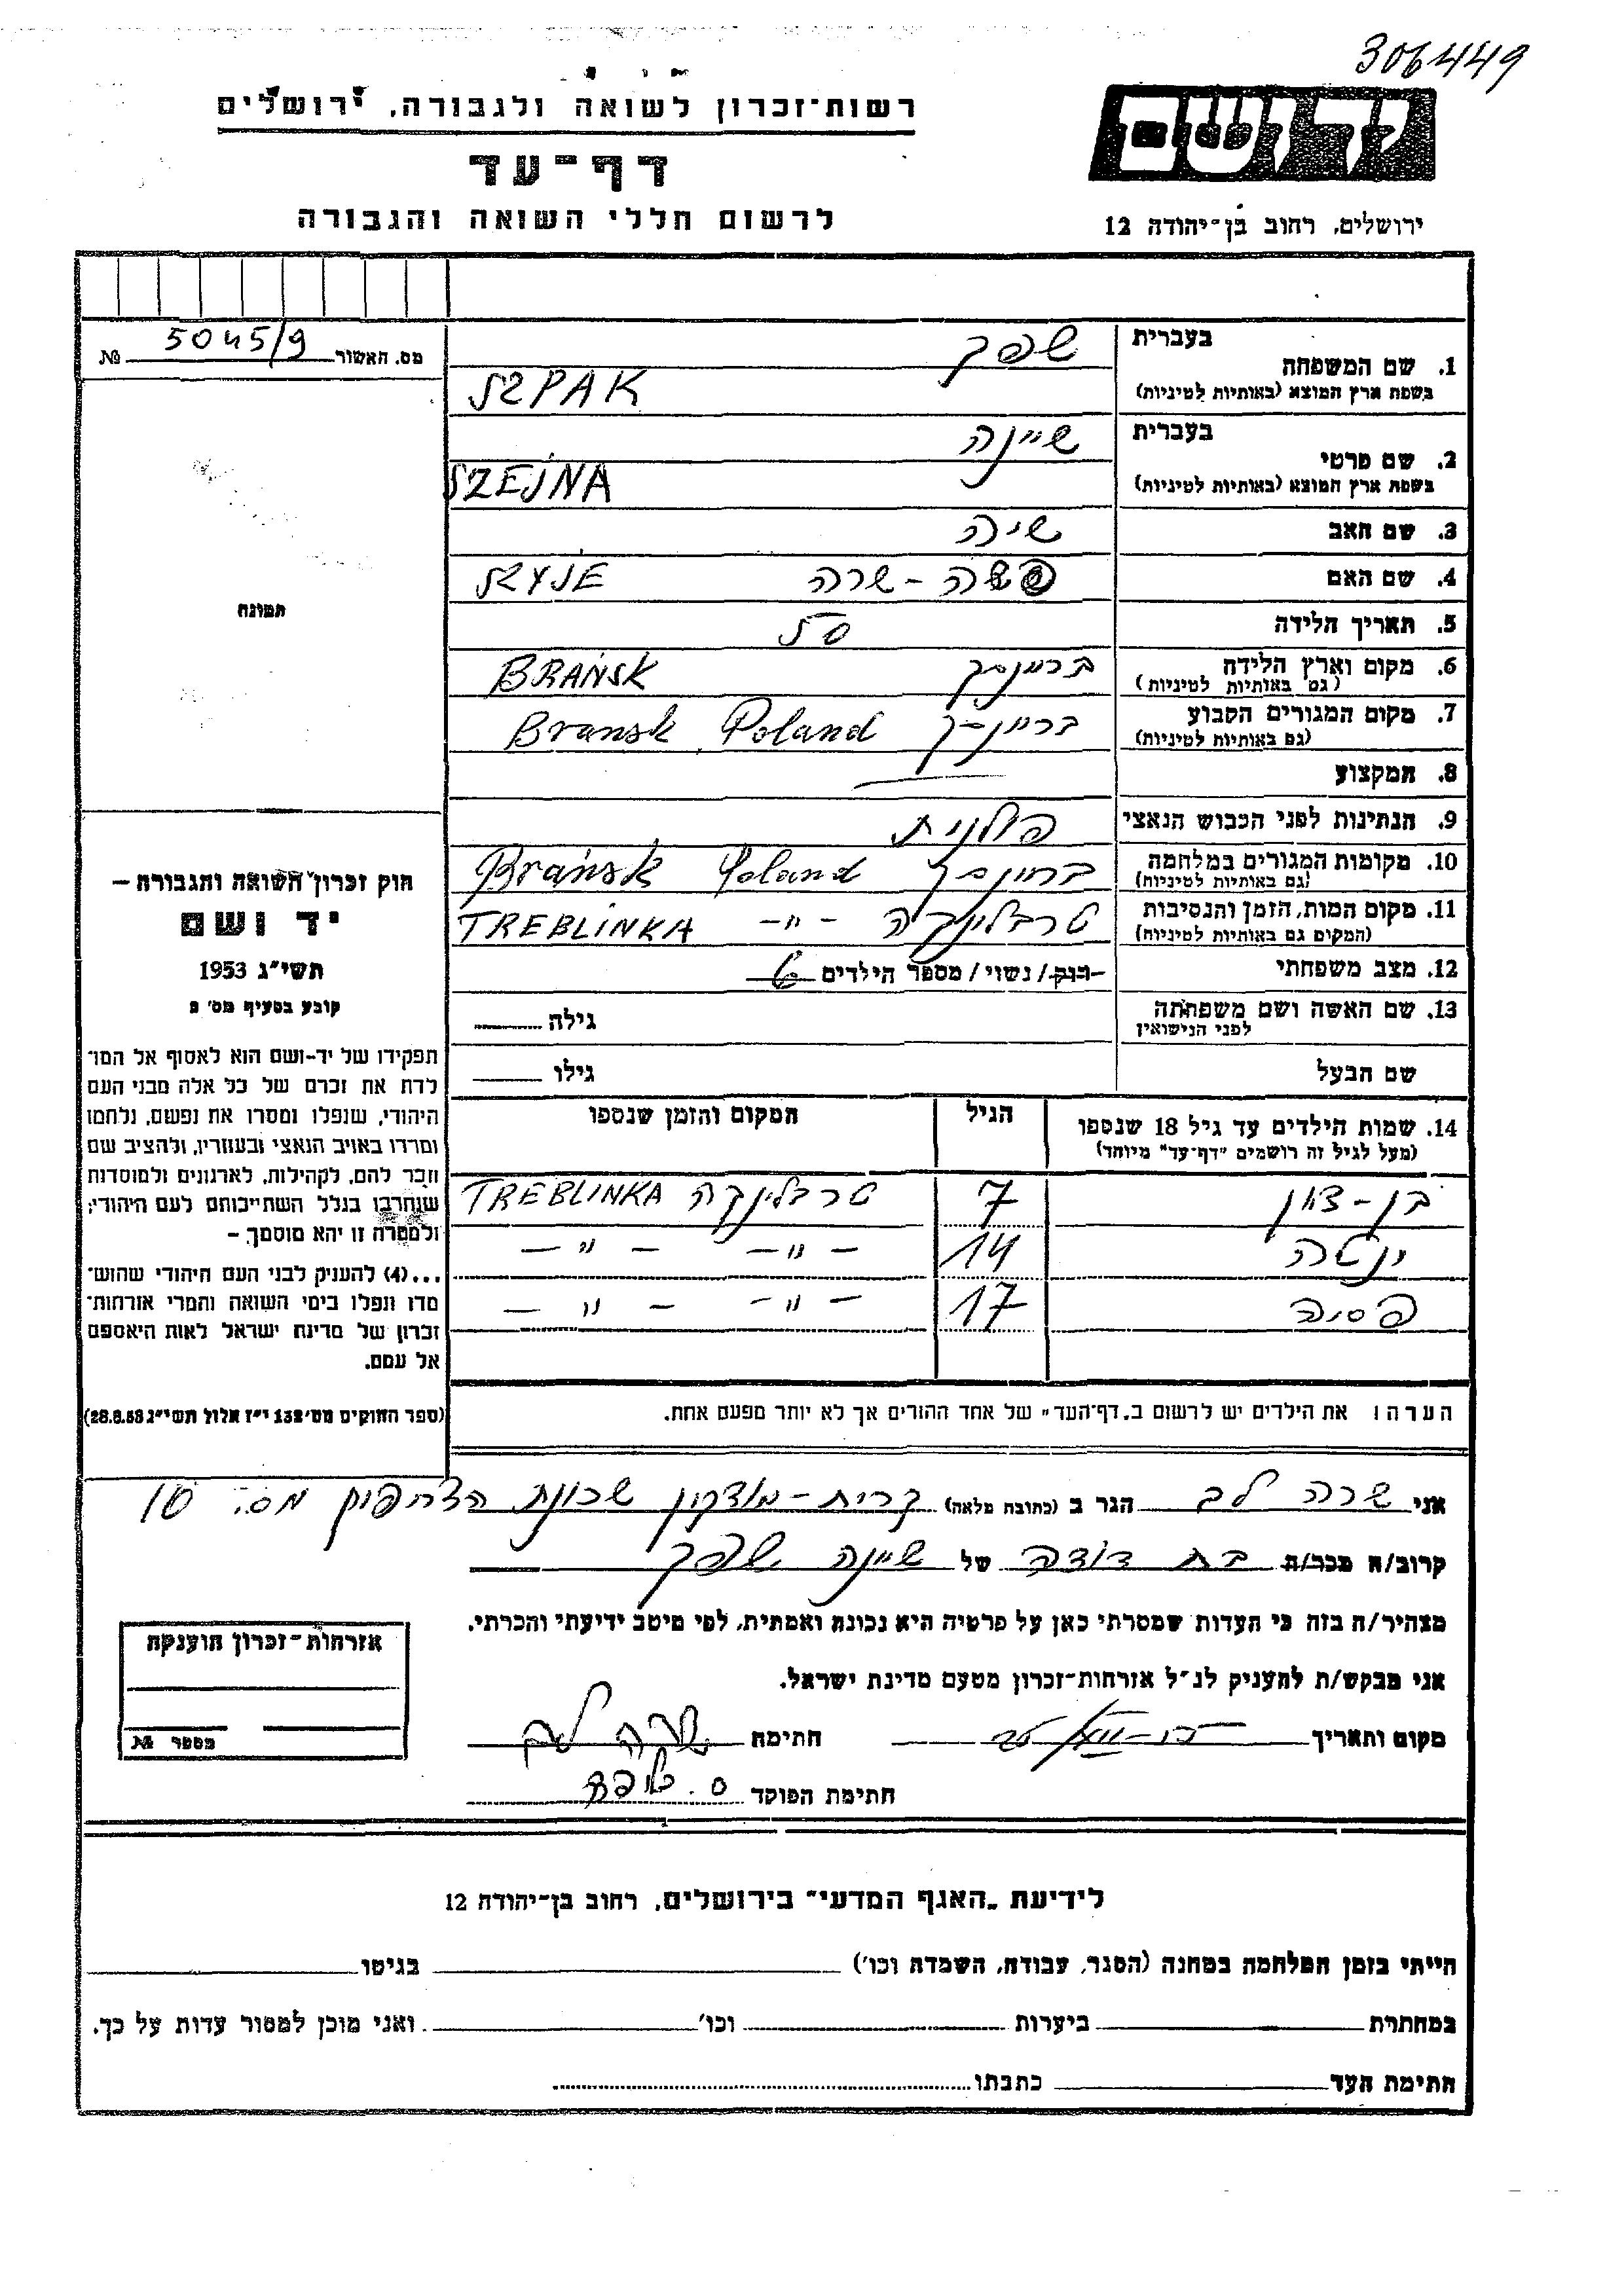 306449
רשות-זכרון לשואה ולגבורה, ירושלים
יד ושם
דף-עד
לרשום חללי השואה והגבורה
ירושלים, רחוב בן-יהודה 12
מס. האשור 5045/9 №
תמונה
1. שם המשפחה בעברית שפק
בשפת ארץ המוצא (באותיות לטיניות) SZPAK
2. שם פרטי בעברית שיינה
בשפת ארץ המוצא (באותיות לטיניות) SZEJNA
3. שם האב שיה
4. שם האם פשה - שרה SZYJE
5. תאריך הלידה 50
6. מקום וארץ הלידה (גם באותיות לטיניות) BRAŃSK
7. מקום המגורים הקבוע (גם באותיות לטיניות) Bransk Poland
8. המקצוע —
9. הנתינות לפני הכבוש הנאצי פולנית
10. מקומות המגורים במלחמה (גם באותיות לטיניות) Brańsk Poland
11. מקום המות, הזמן והנסיבות (המקום גם באותיות לטיניות) טרבלינקה - " - TREBLINKA
12. מצב משפחתי רוק / נשוי / מספר הילדים
13. שם האשה ושם משפחתה לפני הנישואין גילה
שם הבעל גילו
14. שמות הילדים עד גיל 18 שנספו הגיל המקום והזמן שנספו
(מעל לגיל זה רושמים "דף-עד" מיוחד)
בן-ציון 7 טרבלינקה TREBLINKA
ינטה 14 - " - - " -
פסיה 17 - " - - " -
הערה: את הילדים יש לרשום ב"דף-העד" של אחד ההורים אך לא יותר מפעם אחת.
חוק זכרון השואה והגבורה –
יד ושם
תשי"ג 1953
קובע בסעיף מס' 2
תפקידו של יד-ושם הוא לאסוף אל המו-
לדת את זכרם של כל אלה מבני העם
היהודי, שנפלו ומסרו את נפשם, נלחמו
ומרדו באויב הנאצי ובעוזריו, ולהציב שם
וזכר להם, לקהילות, לארגונים ולמוסדות
שנחרבו בגלל השתייכותם לעם היהודי;
ולמטרה זו יהא מוסמך –
...(4) להעניק לבני העם היהודי שהוש-
מדו ונפלו בימי השואה והמרי אזרחות-
זכרון של מדינת ישראל לאות היאספם
אל עמם.
(ספר החוקים מס' 132 י"ז אלול תשי"ג 28.8.53)
אני שרה לב הגר ב (כתובת מלאה) קרית-מוצקין שכונת הצריפים מס. 10
קרוב/ה מכר/ת בת דודה של שיינה שפק
מצהיר/ה בזה כי העדות שמסרתי כאן על פרטיה היא נכונה ואמתית, לפי מיטב ידיעתי והכרתי.
אני מבקש/ת להעניק לנ"ל אזרחות-זכרון מטעם מדינת ישראל.
מקום ותאריך חתימה שרה לב
חתימת הפוקד
אזרחות-זכרון הוענקה
מספר №
לידיעת "האגף המדעי" בירושלים, רחוב בן-יהודה 12
הייתי בזמן המלחמה במחנה (הסגר, עבודה, השמדה וכו') בגיטו
במחתרת ביערות וכו' ואני מוכן למסור עדות על כך.
חתימת העד כתבתו